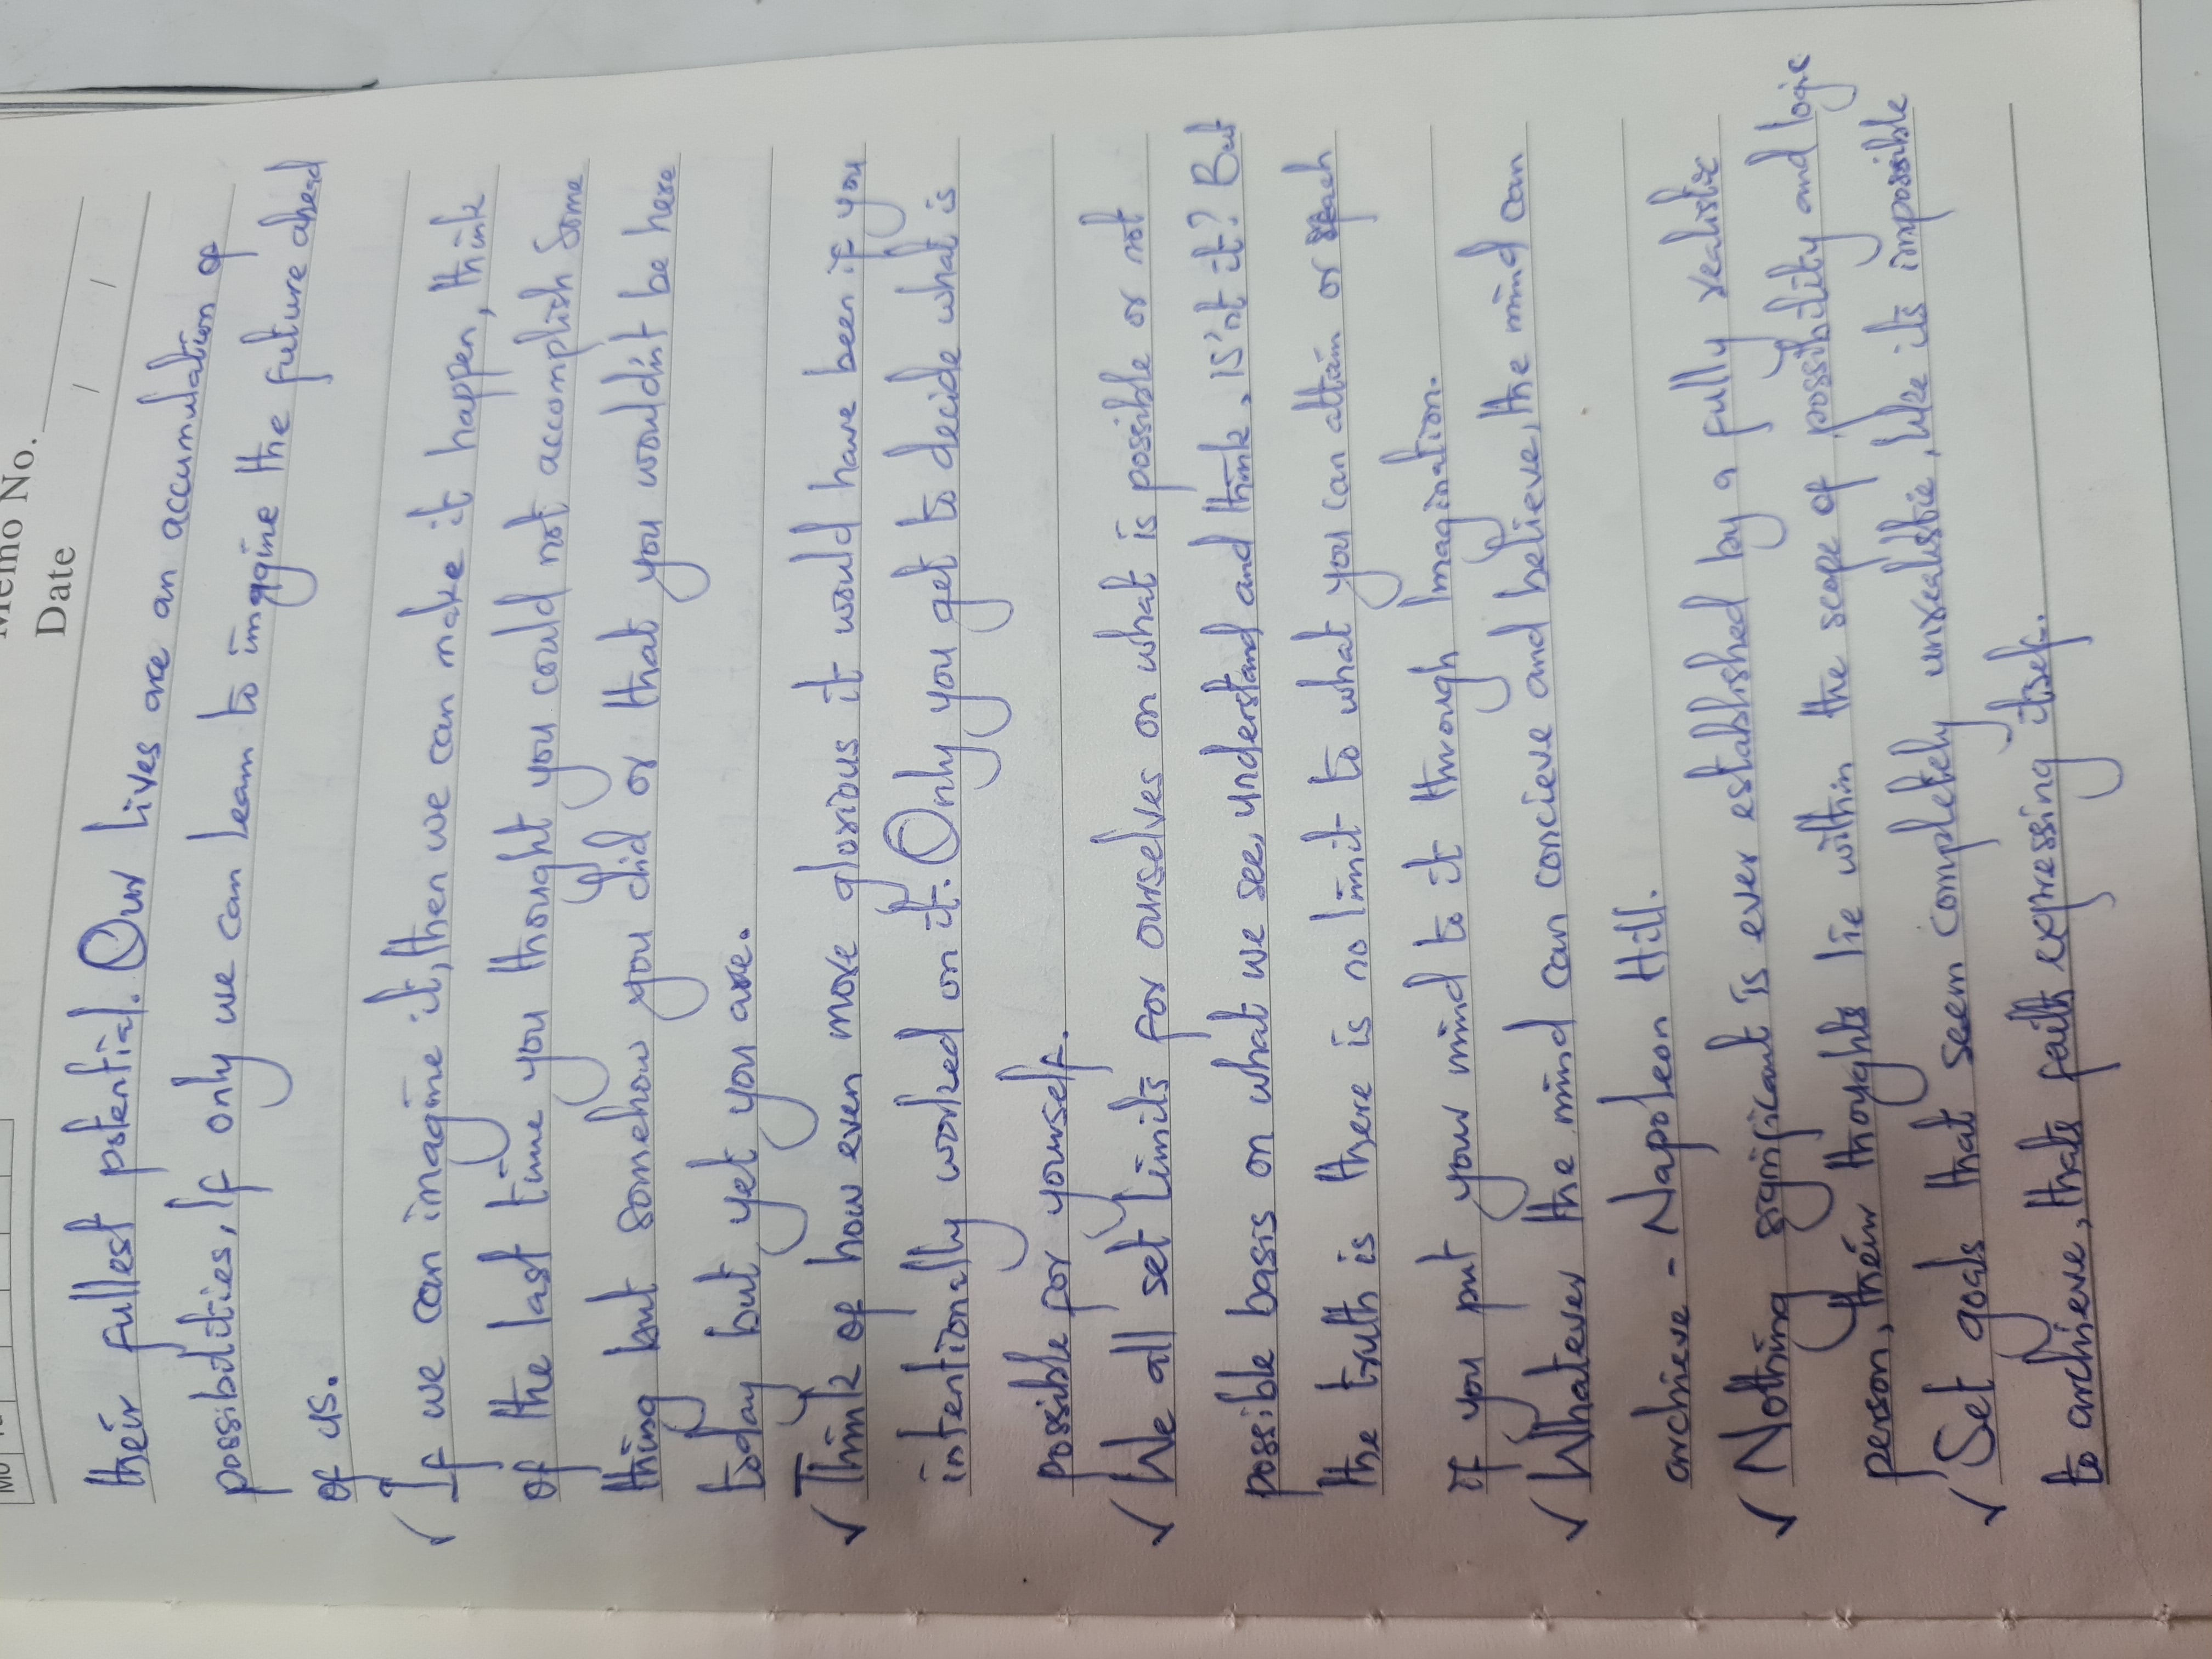 Memo No.
Date / /
their fullest potential. Our lives are an accumulation of
possibilities, If only we can learn to imagine the future ahead
of us.
✓ If we can imagine it, then we can make it happen, think
of the last time you thought you could not accomplish some
thing but somehow you did or that you wouldn't be here
today but yet you are.
✓ Think of how even more glorious it would have been if you
intentionally worked on it. Only you get to decide what is
possible for yourself.
✓ We all set limits for ourselves on what is possible or not
possible basis on what we see, understand and think, IS'nt it? But
the truth is there is no limit to what you can attain or reach
if you put your mind to it through Imagination.
✓ Whatever the mind can concieve and believe, the mind can
archieve - Napoleon Hill.
✓ Nothing significant is ever established by a fully realistic
person, their thoughts lie within the scope of possibility and logic
✓ Set goals that seem completely unrealistic, like its impossible
to archieve, thats faith expressing itself.